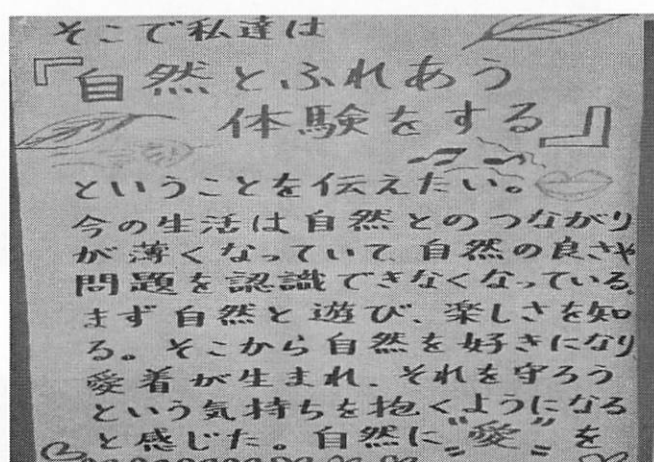 そこで私達は
『自然とふれあう
体験をする』
ということを伝えたい。
今の生活は自然とのつながり
が薄くなっていて、自然の良さや
問題を認識できなくなっている。
まず自然と遊び、楽しさを知
る。そこから自然を好きになり
愛着が生まれ、それを守ろう
という気持ちを抱くようになる
と感じた。自然に"愛"を